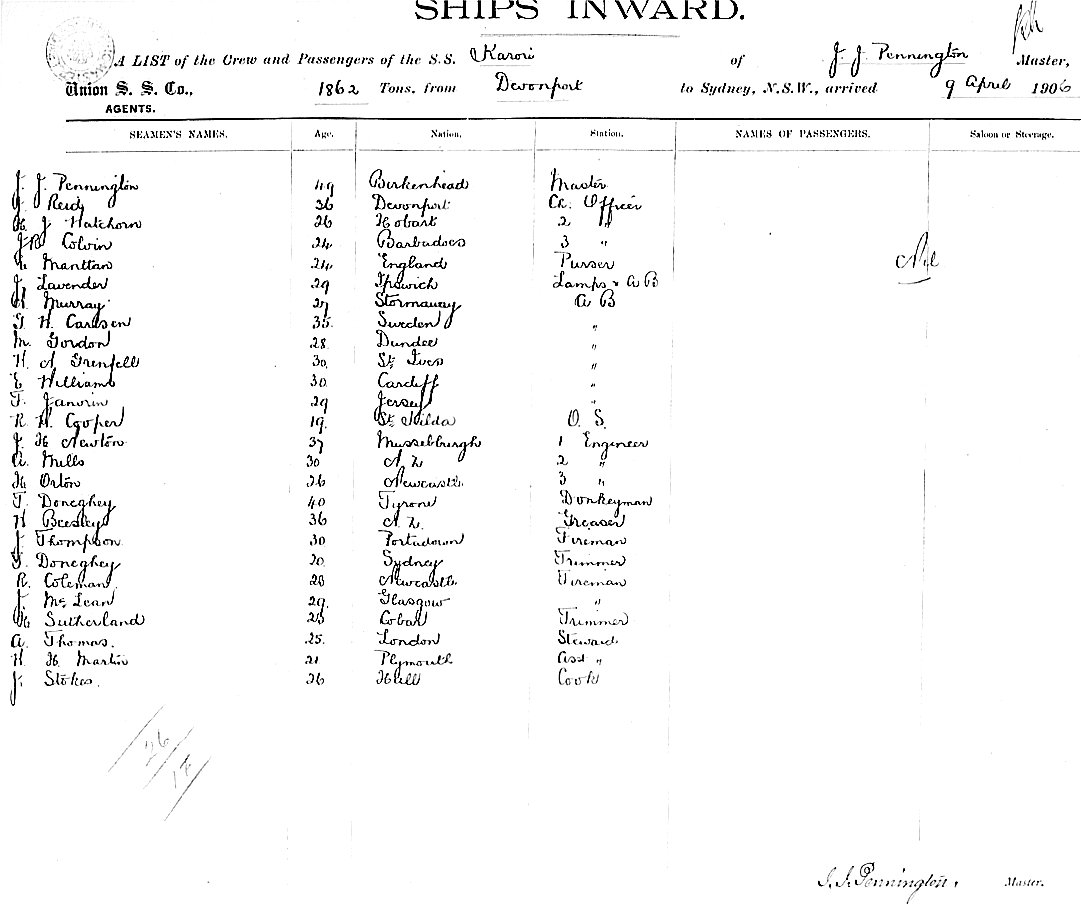 SHIPS INWARD.
A LIST of the Crew and Passengers of the S.S. Karori of J. J. Pennington Master,
Union S. S. Co., 1862 Tons, from Devonport to Sydney, N.S.W., arrived 9 April 1906
AGENTS.
SEAMEN'S NAMES. Age. Nation. Station. NAMES OF PASSENGERS. Saloon or Steerage.
J. J. Pennington 49 Birkenhead Master
J. Reid 36 Devonport Ch. Officer
J Hatchorn 26 Hobart 2 "
Colvin 24 Barbadoes 3 "
Manttan 24 England Purser Nil
J. Lavender 29 Ipswich Lamps & A B
Murray 27 Stornaway A B
H. Carlsen 35. Sweden "
M. Gordon 28. Dundee "
H. A Grenfell 30 St. Ives "
E Williams 30 Cardiff "
F. Janvrin 29 Jersey "
R H. Cooper 19. St. Kilda O. S.
J. W Newton 37 Musselburgh 1 Engineer
A. Mills 30 N Z 2 "
W Orton 26 Newcastle 3 "
T. Doneghey 40 Tyrone Donkeyman
H Beesley 36 N. Z. Greaser
J Thompson 30 Portadown Fireman
Doneghey 20. Sydney Trimmer
R. Coleman 28 Newcastle Fireman
J. McLean 29. Glasgow "
W Sutherland 23 Cobar Trimmer
A. Thomas. 25. London Steward
H. W. Martin 21 Plymouth Asst "
J. Stokes. 26 Hull Cook
26
18
J. J. Pennington. Master.